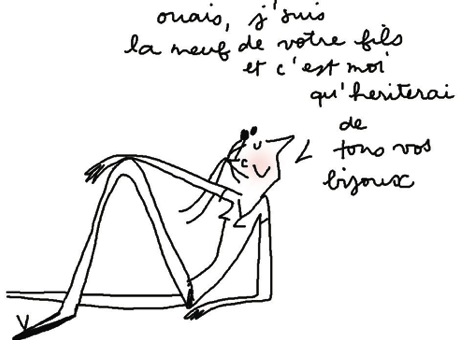 ouais, j'suis
la meuf de votre fils
et c'est moi
qu'heriterai
de
tous vos
bijoux